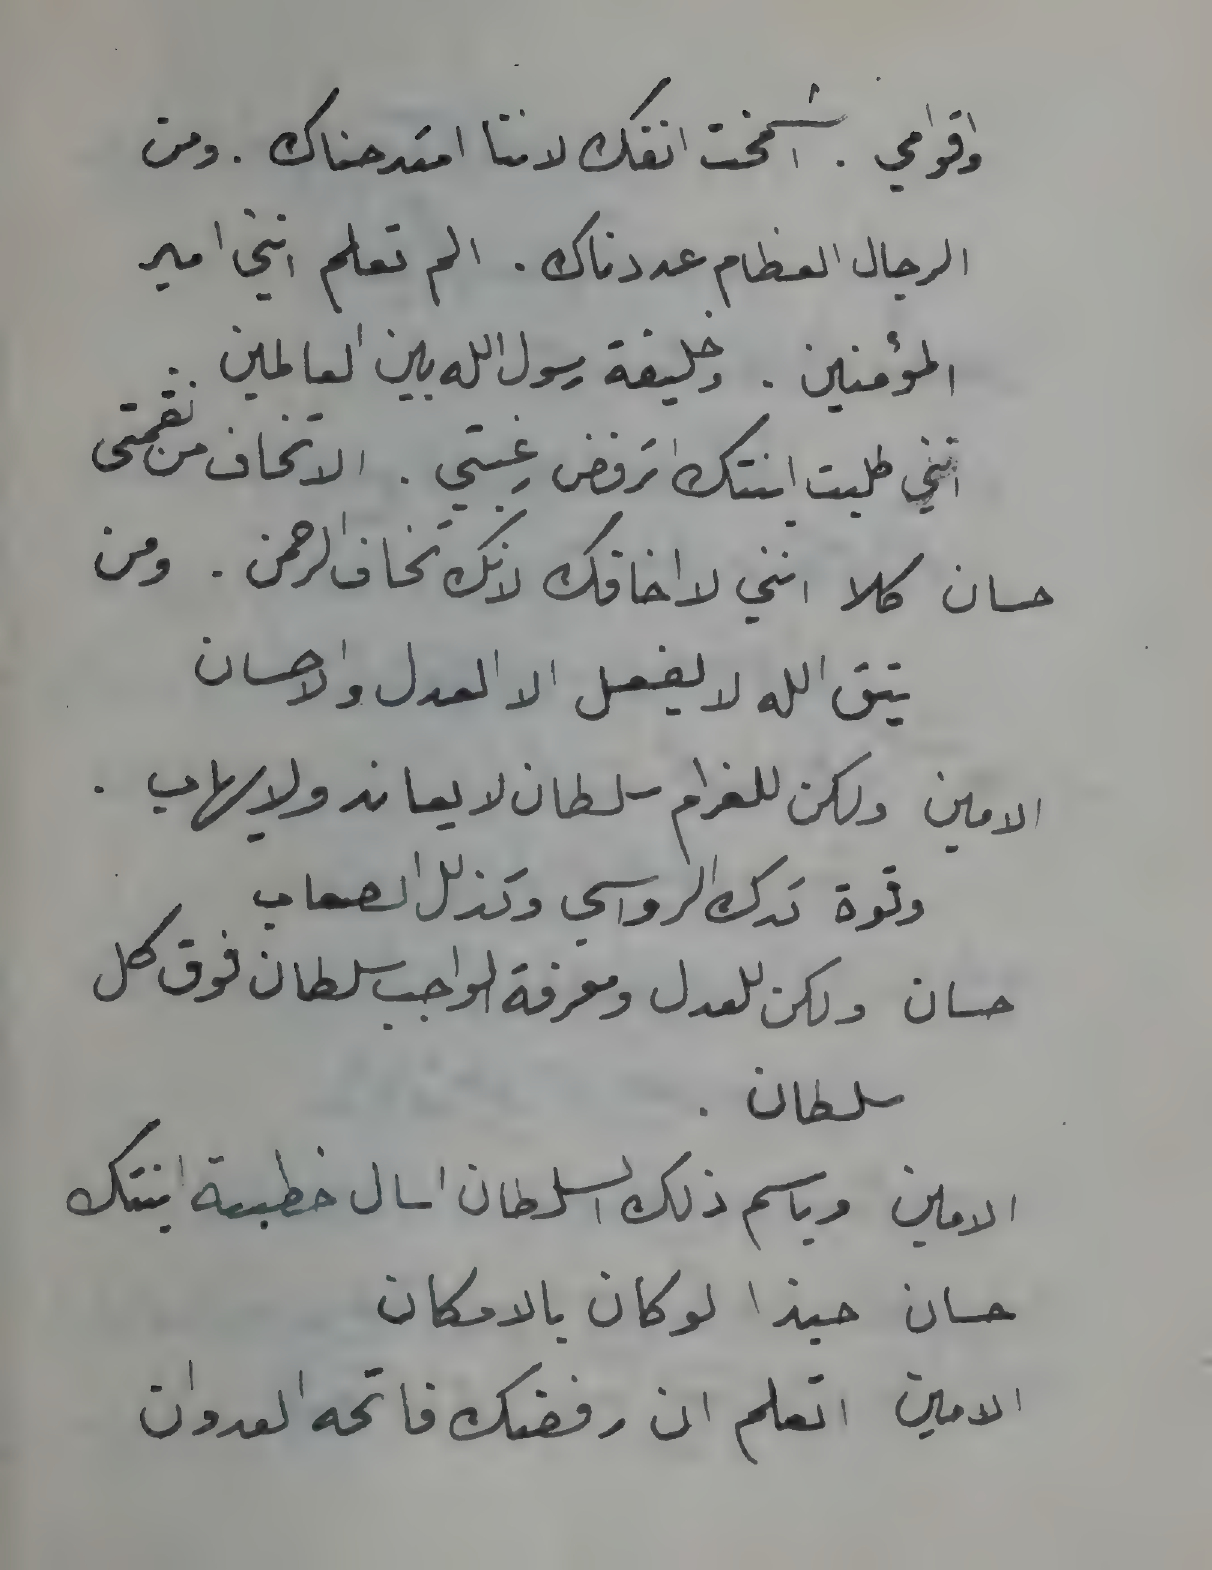 واقوامي . اشمخت انفك لاننا امتدحناك . ومن
الرجال العظام عددناك . الم تعلم انني امير
المؤمنين . وخليفة رسول الله بين العالمين .
انني طلبت ابنتك اترفض رغبتي . الا تخاف من نقمتى
حسان كلا انني لا اخافك لانك تخاف الرحمن . ومن
يتق الله لا يفعل الا العدل والاحسان
الامين ولكن للغرام سلطان لا يعاند ولا يهاب .
وقوة تدك الرواسي وتذلل الصعاب
حسان ولكن للعدل ومعرفة الواجب سلطان فوق كل
سلطان .
الامين وباسم ذلك السلطان اسال خطيبة ابنتك
حسان حبذا لو كان بالامكان
الامين اتعلم ان رفضك فاتحه العدوان